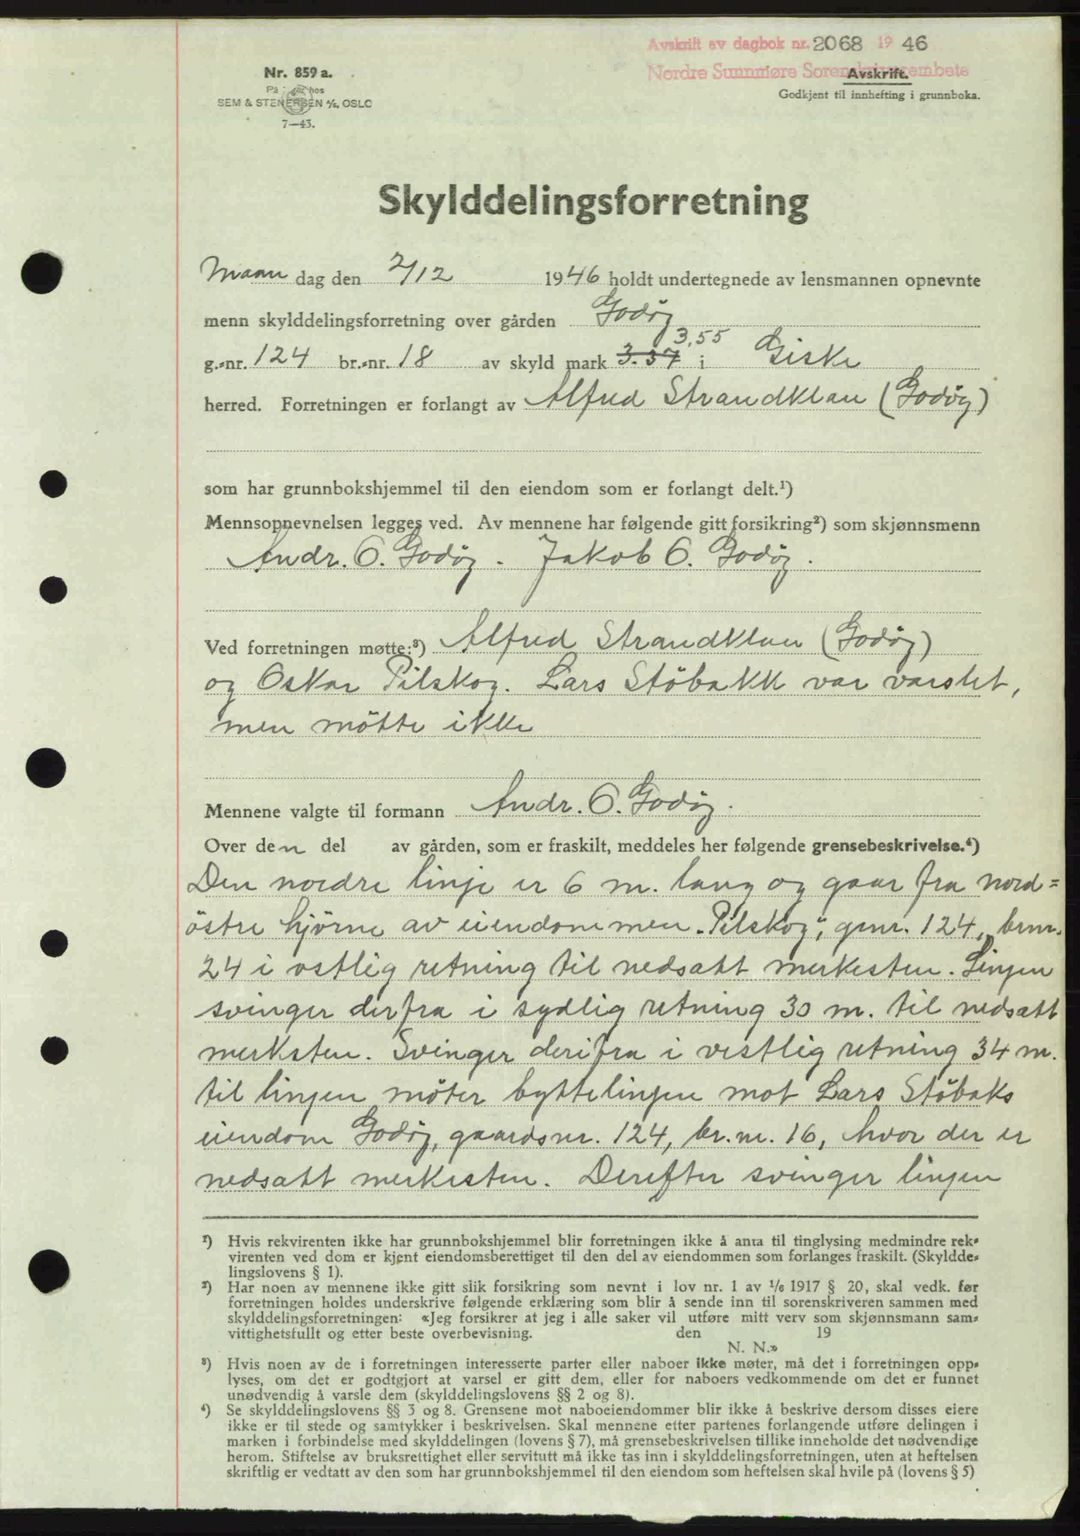 Avskrift av dagbok nr. 2068 19 46
Nordre Sunnmøre Sorenskriverembete
Nr. 859 a.
SEM & STENERSEN A/S, OSLO
7—43.
Avskrift.
Godkjent til innhefting i grunnboka.
Skylddelingsforretning
Maan dag den 2/12 1946 holdt undertegnede av lensmannen opnevnte
menn skylddelingsforretning over gården Godøy
3,55
g.-nr. 124 br.-nr. 18 av skyld mark 3.37 i Giske
herred. Forretningen er forlangt av Alfred Strandklau (Godøy)
som har grunnbokshjemmel til den eiendom som er forlangt delt.¹)
Mennsopnevnelsen legges ved. Av mennene har følgende gitt forsikring²) som skjønnsmenn
Andr. O. Godøy. Jakob O. Godøy.
Ved forretningen møtte:³) Alfred Strandklau (Godøy)
og Oskar Pilskog. Lars Stöbakk var varslet,
men mötte ikke
Mennene valgte til formann Andr. O. Godøy.
Over den del av gården, som er fraskilt, meddeles her følgende grensebeskrivelse.⁴)
Den nordre linje er 6 m. lang og gaar fra nord=
östre hjörne av eiendommen „Pilskog”, gnr. 124, brnr.
24 i vestlig retning til nedsatt merkesten. Linjen
svinger derfra i sydlig retning 30 m. til nedsatt
merksten. Svinger derifra i vestlig retning 34 m.
til linjen möter byttelinjen mot Lars Stöbaks
eiendom Godøy, gaardsnr. 124, br.nr. 16, hvor der er
nedsatt merkesten. Derefter svinger linjen
¹) Hvis rekvirenten ikke har grunnbokshjemmel blir forretningen ikke å anta til tinglysing medmindre rek-
virenten ved dom er kjent eiendomsberettiget til den del av eiendommen som forlanges fraskilt. (Skyldde-
lingslovens § 1).
²) Har noen av mennene ikke gitt slik forsikring som nevnt i lov nr. 1 av 1/6 1917 § 20, skal vedk. før
forretningen holdes underskrive følgende erklæring som blir å sende inn til sorenskriveren sammen med
skylddelingsforretningen: «Jeg forsikrer at jeg i alle saker vil utføre mitt verv som skjønnsmann sam-
vittighetsfullt og etter beste overbevisning. den 19
N. N.»
³) Hvis noen av de i forretningen interesserte parter eller naboer ikke møter, må det i forretningen opp-
lyses, om det er godtgjort at varsel er gitt dem, eller for naboers vedkommende om det er funnet
unødvendig å varsle dem (skylddelingslovens §§ 2 og 8).
⁴) Se skylddelingslovens §§ 3 og 8. Grensene mot naboeiendommer blir ikke å beskrive dersom disses eiere
ikke er til stede og samtykker i beskrivelsen. Skal mennene etter partenes forlangende utføre delingen i
marken i forbindelse med skylddelingen (lovens § 7), må grensebeskrivelsen tillike inneholde det nødvendige
herom. Stiftelse av bruksrettighet eller servitutt må ikke tas inn i skylddelingsforretningen, uten at heftelsen
skriftlig er vedtatt av den som har grunnbokshjemmel til den eiendom som heftelsen skal hvile på (lovens § 5)